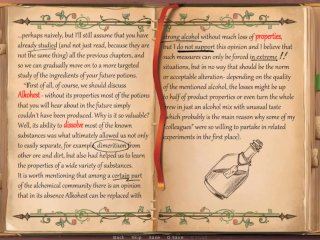 ...perhaps naively, but I'll still assume that you have
already studied (and not just read, because they are
not the same thing) all the previous chapters, and
so we can gradually move on to a more targeted
study of the ingredients of your future potions.
"First of all, of course, we should discuss
Alkohest - without its properties most of the potions
that you will hear about in the future simply
couldn't have been produced. Why is it so valuable?
Well, its ability to dissolve most of the known
substances was what ultimately allowed us not only
to easily separate, for example, dimeritium from
other ore and dirt, but also had helped us to learn
the properties of a wide variety of substances.
It is worth mentioning that among a certain part
of the alchemical community there is an opinion
that in its absence Alkohest can be replaced with
strong alcohol without much loss of properties,
but I do not support this opinion and I believe that
such measures can only be forced in extreme !!
situations, but in no way that should be the norm
or acceptable alteration- depending on the quality
of the mentioned alcohol, the losses might be up
to half of product properties or even turn the whole
brew in just an alcohol mix with unusual taste
(which probably is the main reason why some of my
"colleagues" were so willing to partake in related
experiments in the first place).
Back Skip Save Q.Save